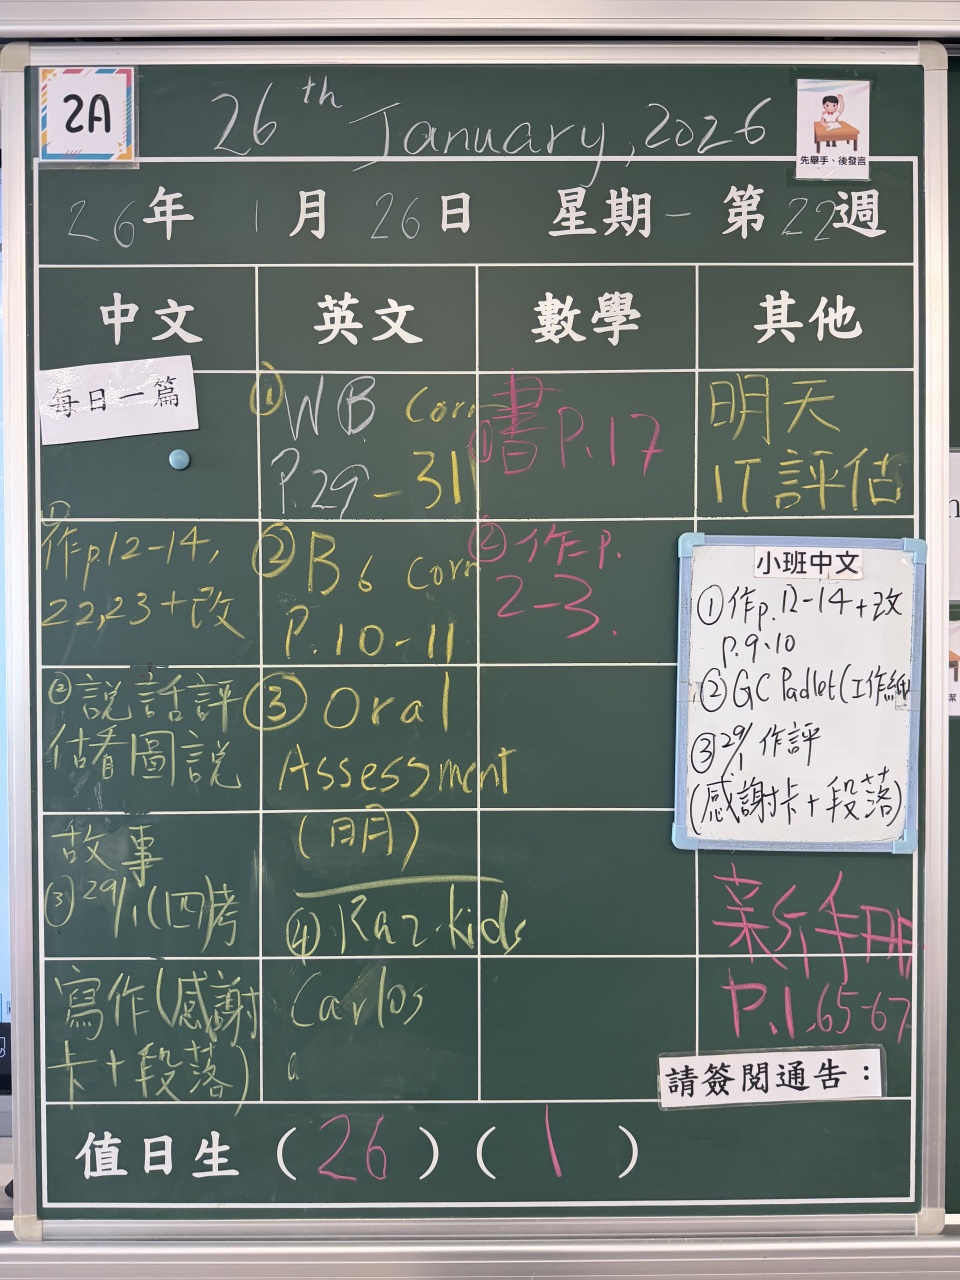 2A
26th January, 2026
先舉手、後發言
26年 1月 26日 星期一 第22週
中文 英文 數學 其他
每日一篇
①作p.12-14,
22,23+改
②說話評
估看圖說
故事
③29/1(四)考
寫作(感謝
卡+段落)
①WB Corr
P.29-31
②B6 Corr
P.10-11
③Oral
Assessment
(明)
④Raz-kids
Carlos
①書P.17
②作P.
2-3.
明天
IT評估
小班中文
①作p.12-14+改
p.9,10
②GC Padlet(工作紙
③29/1 作評
(感謝卡+段落)
新手冊
P.1,65-67
請簽閱通告：
值日生(26)(1)